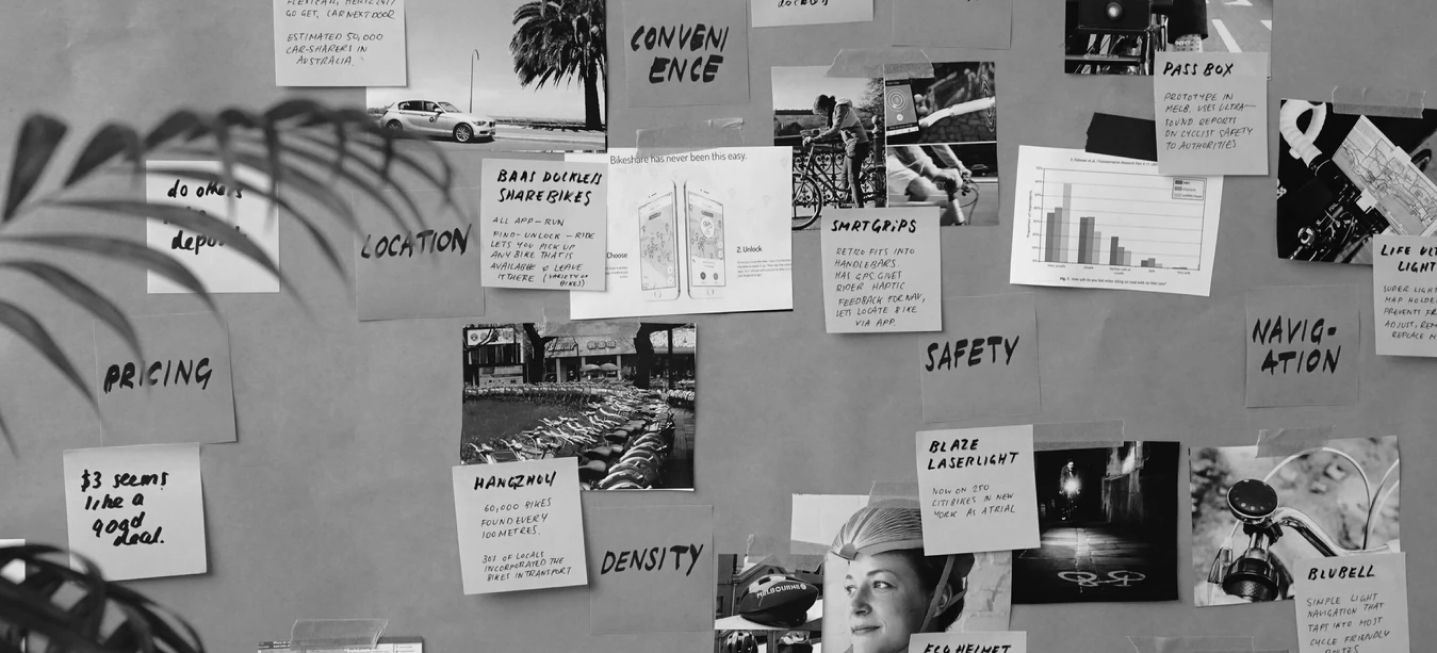 GO GET, CAR NEXT DOOR
ESTIMATED 50,000
CAR-SHARERS IN
AUSTRALIA.
CONVENI
ENCE
PASS BOX
PROTOTYPE IN
MELB, USES ULTRA-
SOUND REPORTS
ON CYCLIST SAFETY
TO AUTHORITIES
do others
LOCATION
BAAS DOCKLESS
SHAREBIKES
ALL APP-RUN
FIND-UNLOCK-RIDE
LETS YOU PICK UP
ANY BIKE THAT IS
AVAILABLE & LEAVE
IT THERE (VARIETY OF
BIKES)
Bikeshare has never been this easy.
Choose
2. Unlock
SMRTGRiPS
RETRO FITS INTO
HANDLEBARS.
HAS GPS. GIVES
RIDER HAPTIC
FEEDBACK FOR NAV,
LETS LOCATE BIKE
VIA APP.
LIGHT
SUPER LIGHT
PRICING
SAFETY
NAVIG-
ATION
$3 seems
like a
good
deal.
HANGZHOU
60,000 BIKES
FOUND EVERY
100 METRES.
30% OF LOCALS
INCORPORATED THE
BIKES IN TRANSPORT
DENSITY
MELBOURNE
BLAZE
LASERLIGHT
NOW ON 250
CITIBIKES IN NEW
YORK AS A TRIAL
BLUBELL
SIMPLE LIGHT
NAVIGATION THAT
TAPS INTO MOST
CYCLE FRIENDLY
ROUTES
ECO HELMET